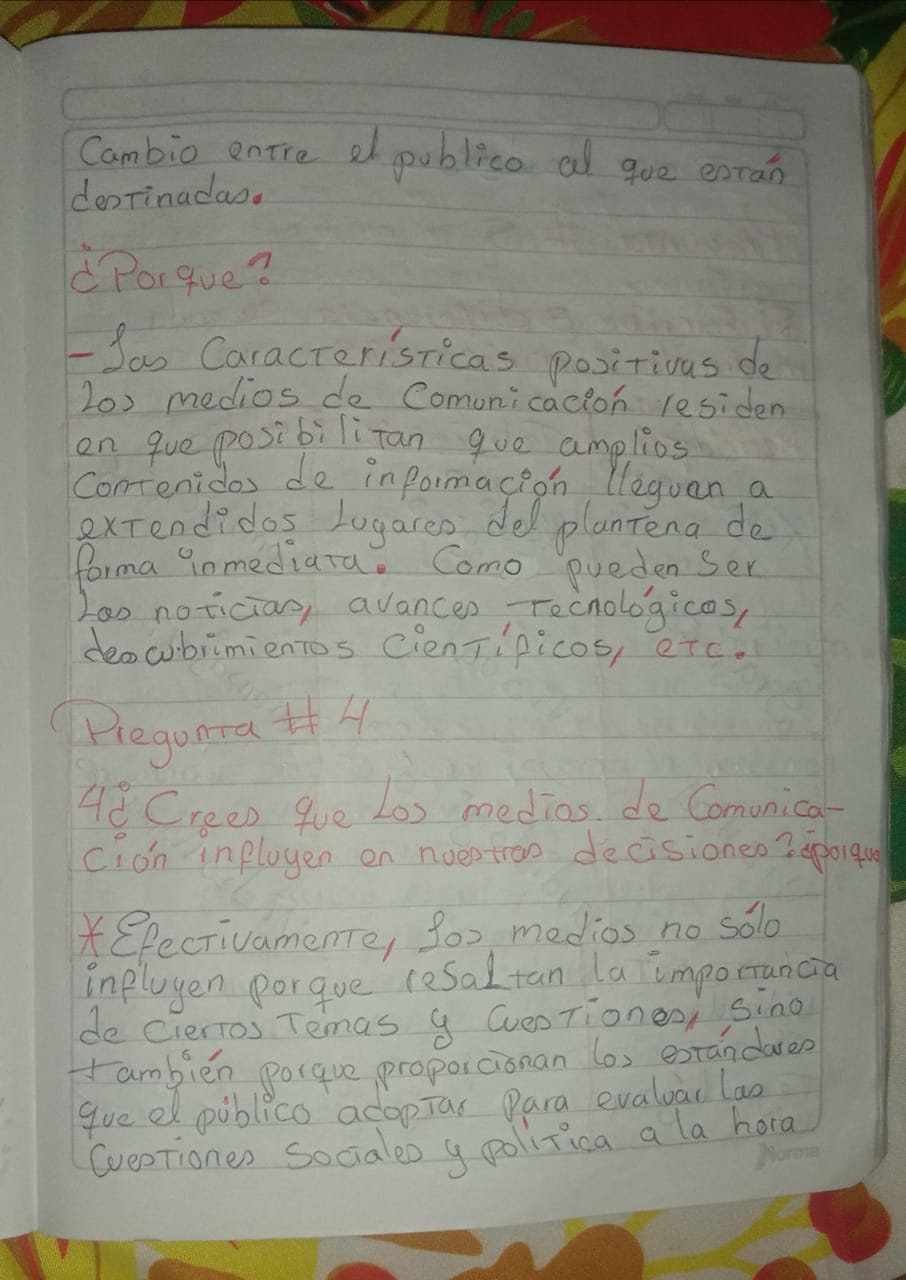 Cambio entre el publico al que están
destinadas.
¿Porque?
- Las Características positivas de
Los medios de Comunicación residen
en que posibilitan que amplios
Contenidos de información lleguen a
extendidos Lugares del plantena de
forma inmediata. Como pueden Ser
Las noticias, avances Tecnológicos,
descubrimientos Científicos, etc.
Pregunta # 4
4¿ Crees que Los medios de Comunica-
ción influyen en nuestras decisiones? ¿porque
* Efectivamente, Los medios no sólo
influyen porque resaltan la importancia
de Ciertos Temas y Cuestiones, Sino
también porque proporcionan los estándares
que el público adoptar Para evaluar las
Cuestiones Sociales y política a la hora
Norma